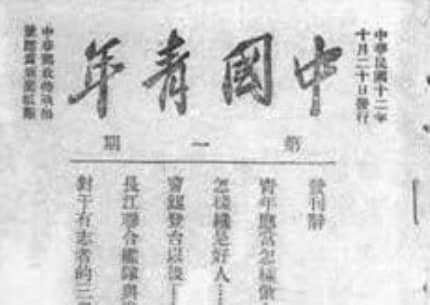 中華民國十二年
十月二十日發行
中國青年
中華郵政特准掛
號認爲新聞紙類
第一期
發刊辭
青年應當怎樣做
怎樣纔是好人…
長江聯合艦隊與
對于有志者的三